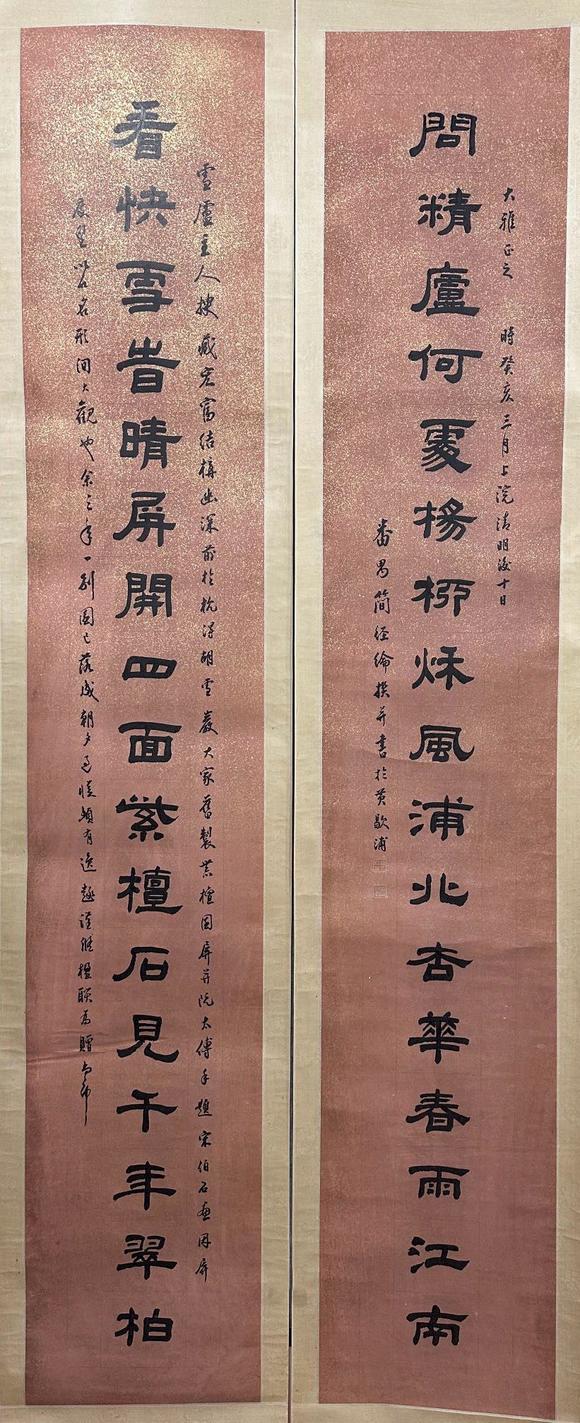 看快雪時晴屏開四面紫檀石見千年翠柏
雪廬主人搜藏宏富結構幽深前於杭得明雪大家舊製紫檀圍屏并阮太傅手題宋伯石畫屏
洵大觀也余三年一別園已落成朝夕過從頗有逸趣謹撰楹聯為贈即希
問精廬何處楊柳秌風浦北杏華春雨江南
大雅正之 時癸亥三月上浣清明後十日
番禺簡經綸撰并書於黄歇浦